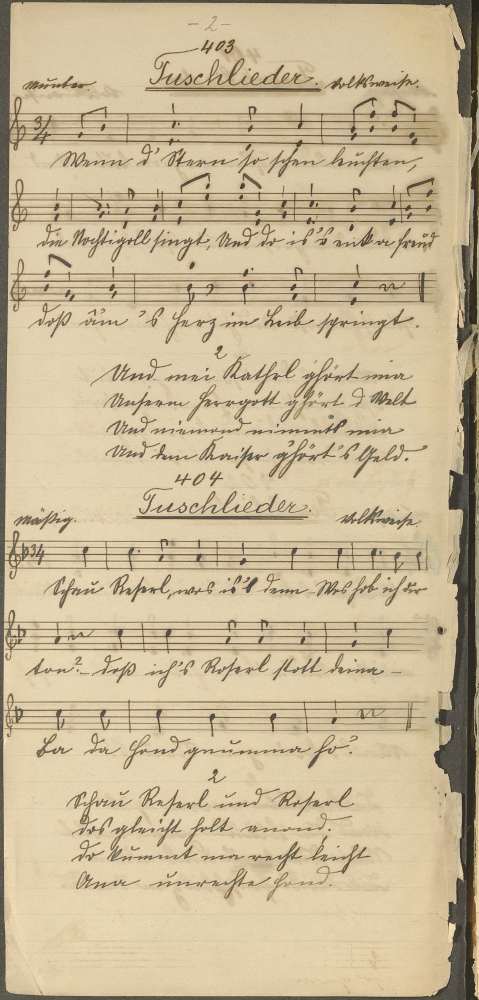 -2-
403
Tuschlieder.
munter. Volksweise.
3/4
Wenn d' Stern so schen leuchten,
die Nochtigoll singt, Und do is's enk a Freud
doß äm 's Herz im Leib springt.
2
Und mei Kathrl ghört mia
Unserm Herrgott ghört d Welt
Und niemand nimmts ma
Und dem Kaiser g'hört's Geld.
404
Tuschlieder.
mäßig. Volksweise
3/4
Schau Reserl, wos is's denn Wos hob ich dir
ton? – doß ich's Roserl stott deina –
Ba da Hond gnumma ho'.
2
Schau Reserl und Roserl
dos gleicht holt anond.
do kummt ma recht leicht
Ana unrechte Hond.